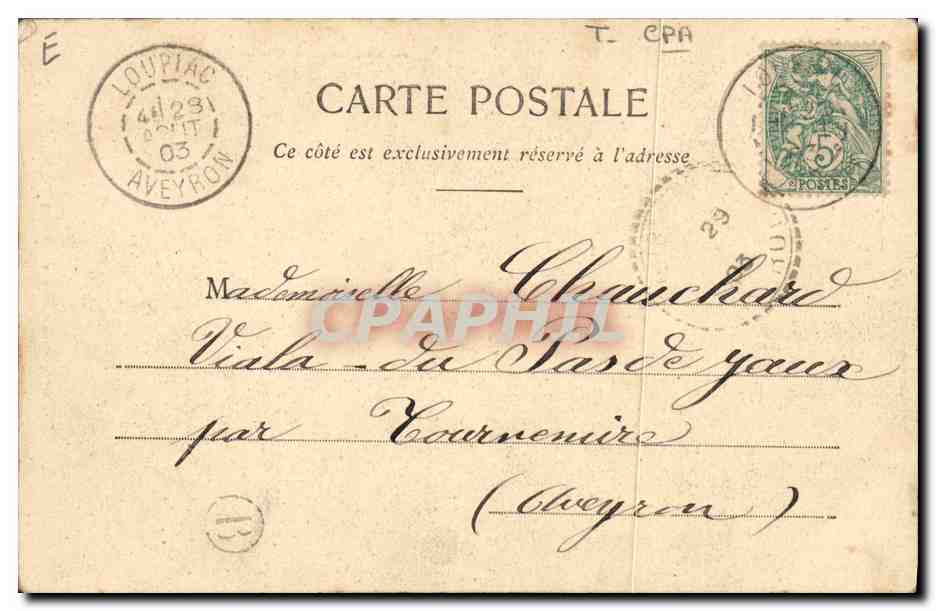 É
T- CPA
LOUPIAC
28
AOUT
03
AVEYRON
5
POSTES
CARTE POSTALE
Ce côté est exclusivement réservé à l'adresse
29
03
Mademoiselle Chauchard
CPAPHIL
Viala-du Pas de yaux
par Tournemire
(Aveyron)
B